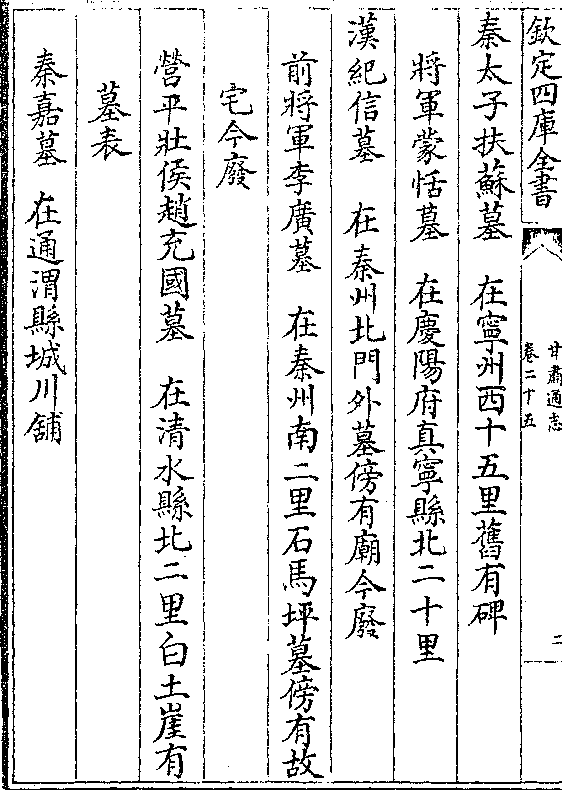 欽定四庫全書
甘肅通志
卷二十五
二
秦太子扶蘇墓 在寧州西十五里舊有碑
將軍蒙恬墓 在慶陽府真寧縣北二十里
漢紀信墓 在秦州北門外墓傍有廟今廢
前將軍李廣墓 在秦州南二里石馬坪墓傍有故
宅今廢
營平壯侯趙充國墓 在清水縣北二里白土崖有
墓表
秦嘉墓 在通渭縣城川舖